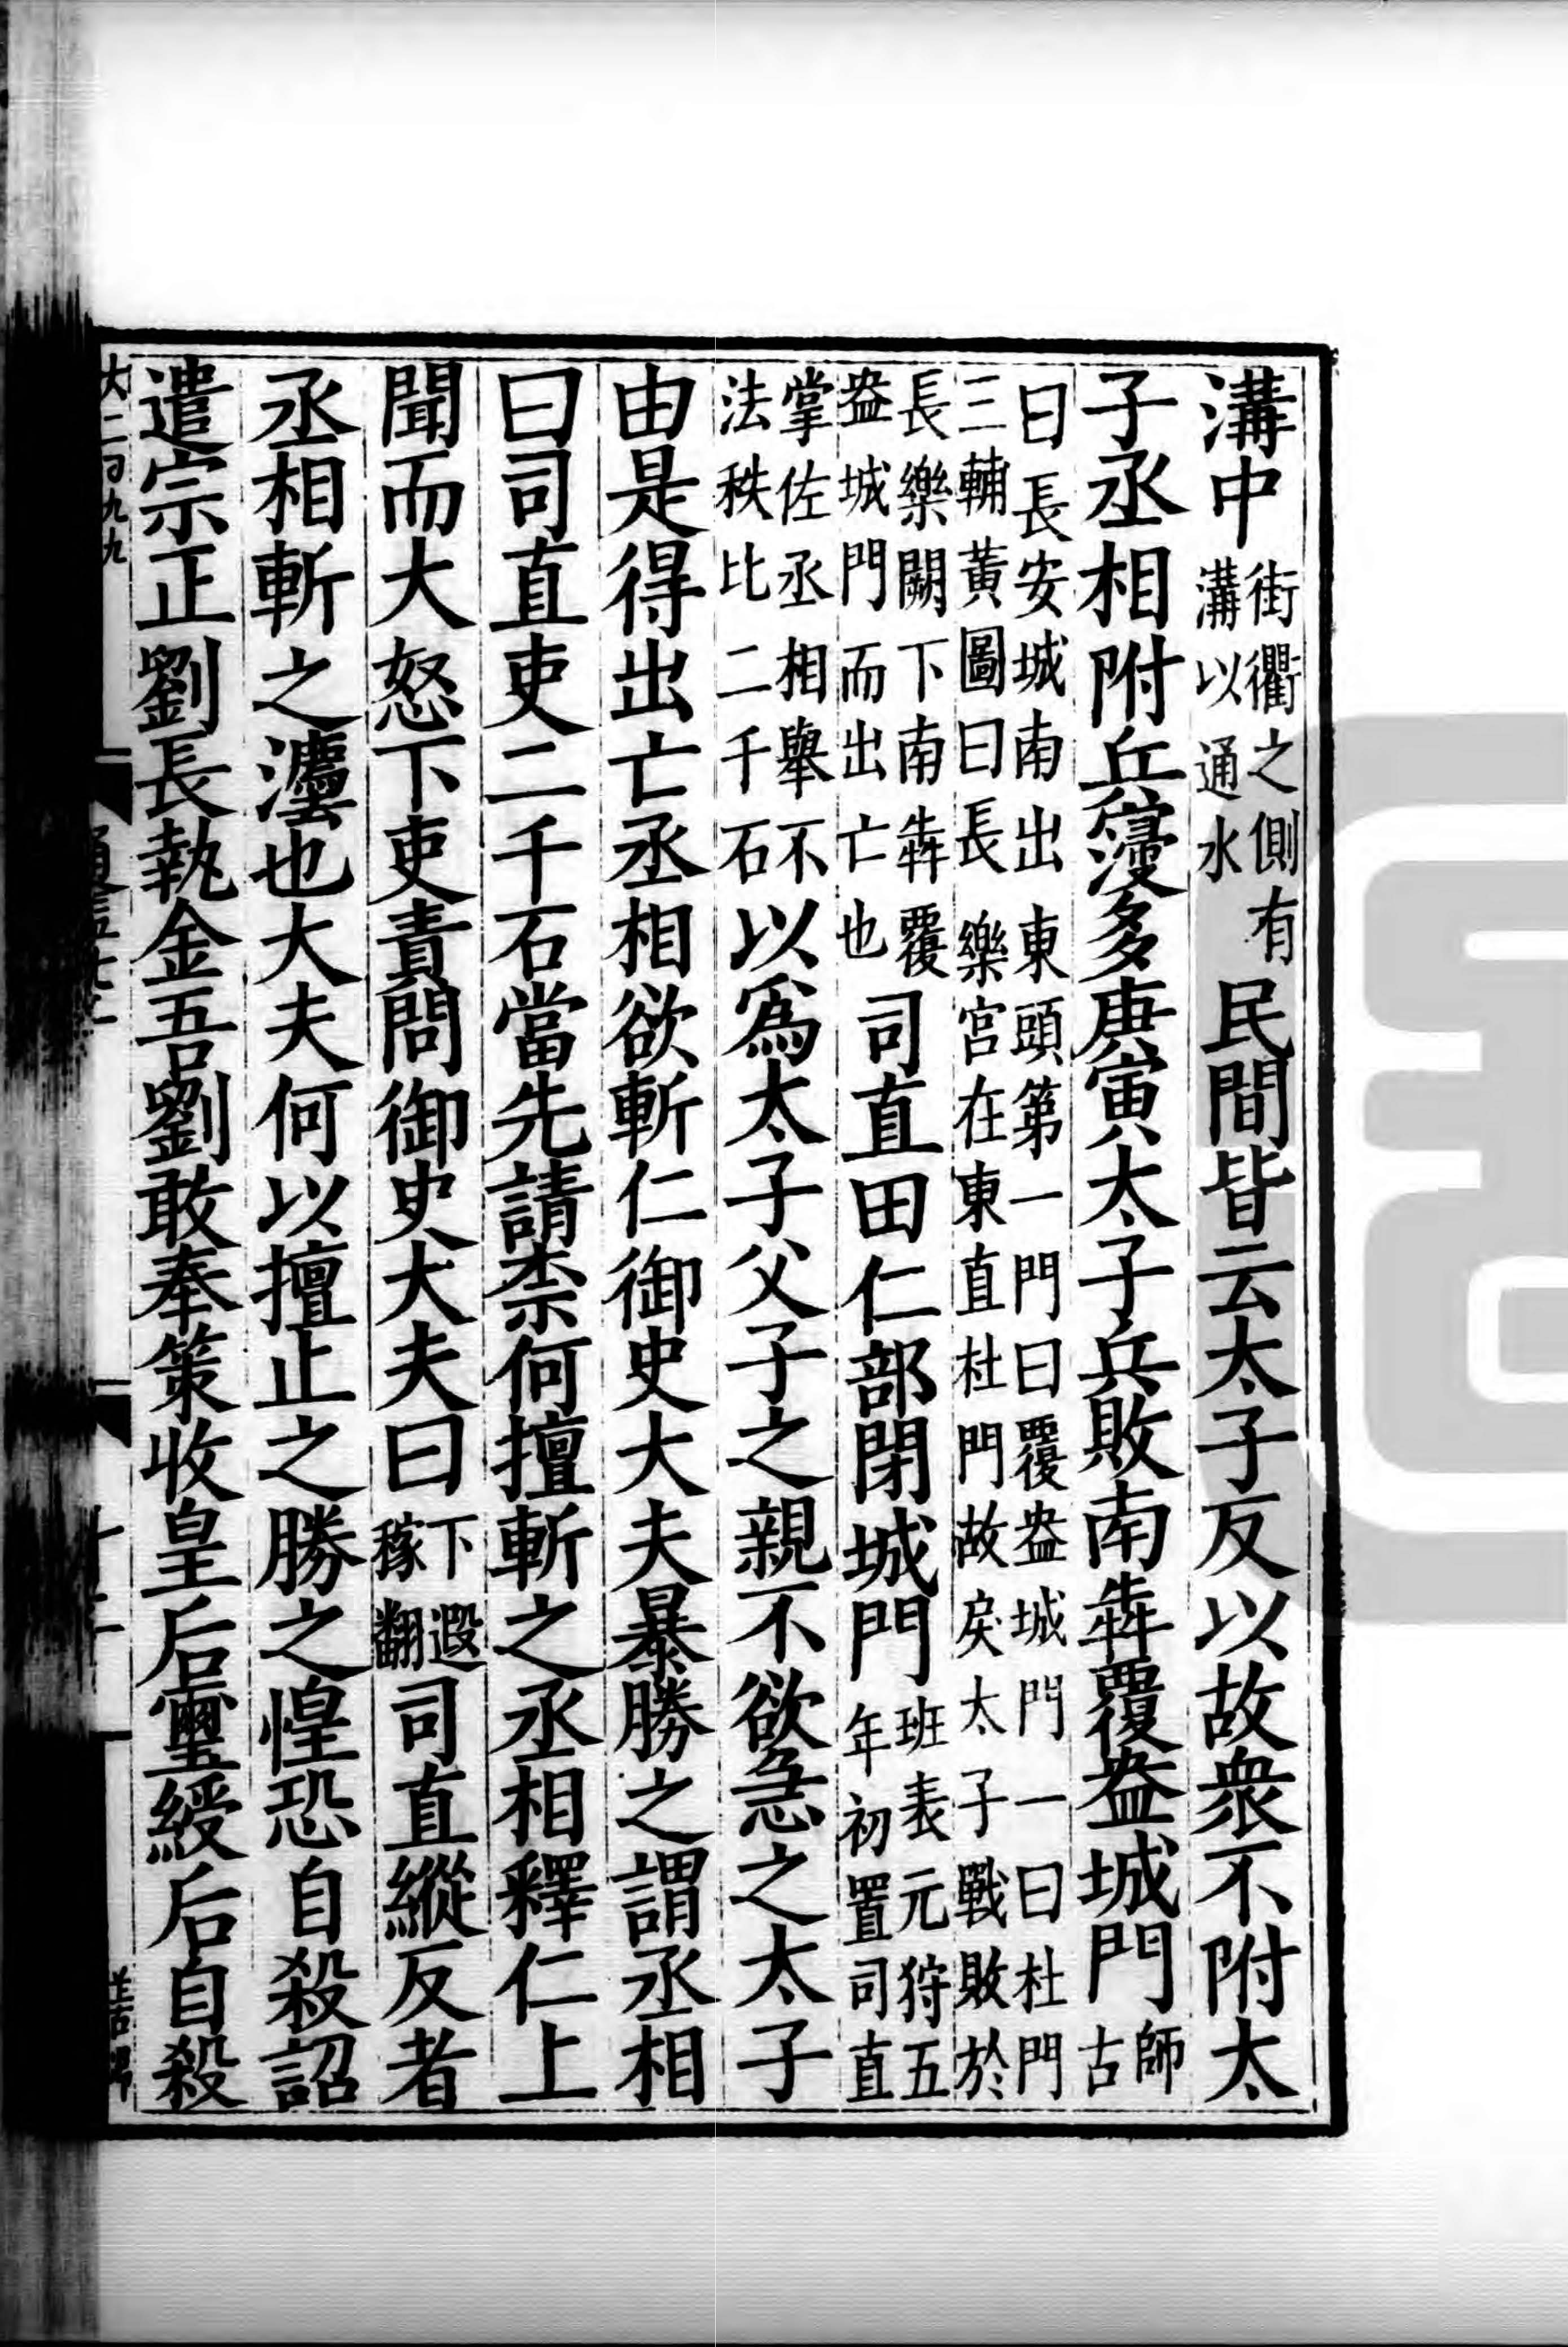 溝中街衢之側有溝以通水民間皆云太子反以故衆不附太
子丞相附兵寖多庚寅太子兵敗南犇覆盎城門師古
曰長安城南出東頭第一門曰覆盎城門一曰杜門
三輔黃圖曰長樂宮在東直杜門故戾太子戰敗於
長樂闕下南犇覆盎城門而出亡也司直田仁部閉城門班表元狩五年初置司直
掌佐丞相舉不法秩比二千石以爲太子父子之親不欲急之太子
由是得出亡丞相欲斬仁御史大夫暴勝之謂丞相
曰司直吏二千石當先請柰何擅斬之丞相釋仁上
聞而大怒下吏責問御史大夫曰下遐稼翻司直縱反者
丞相斬之灋也大夫何以擅止之勝之惶恐自殺詔
遣宗正劉長執金吾劉敢奉策收皇后璽綬后自殺